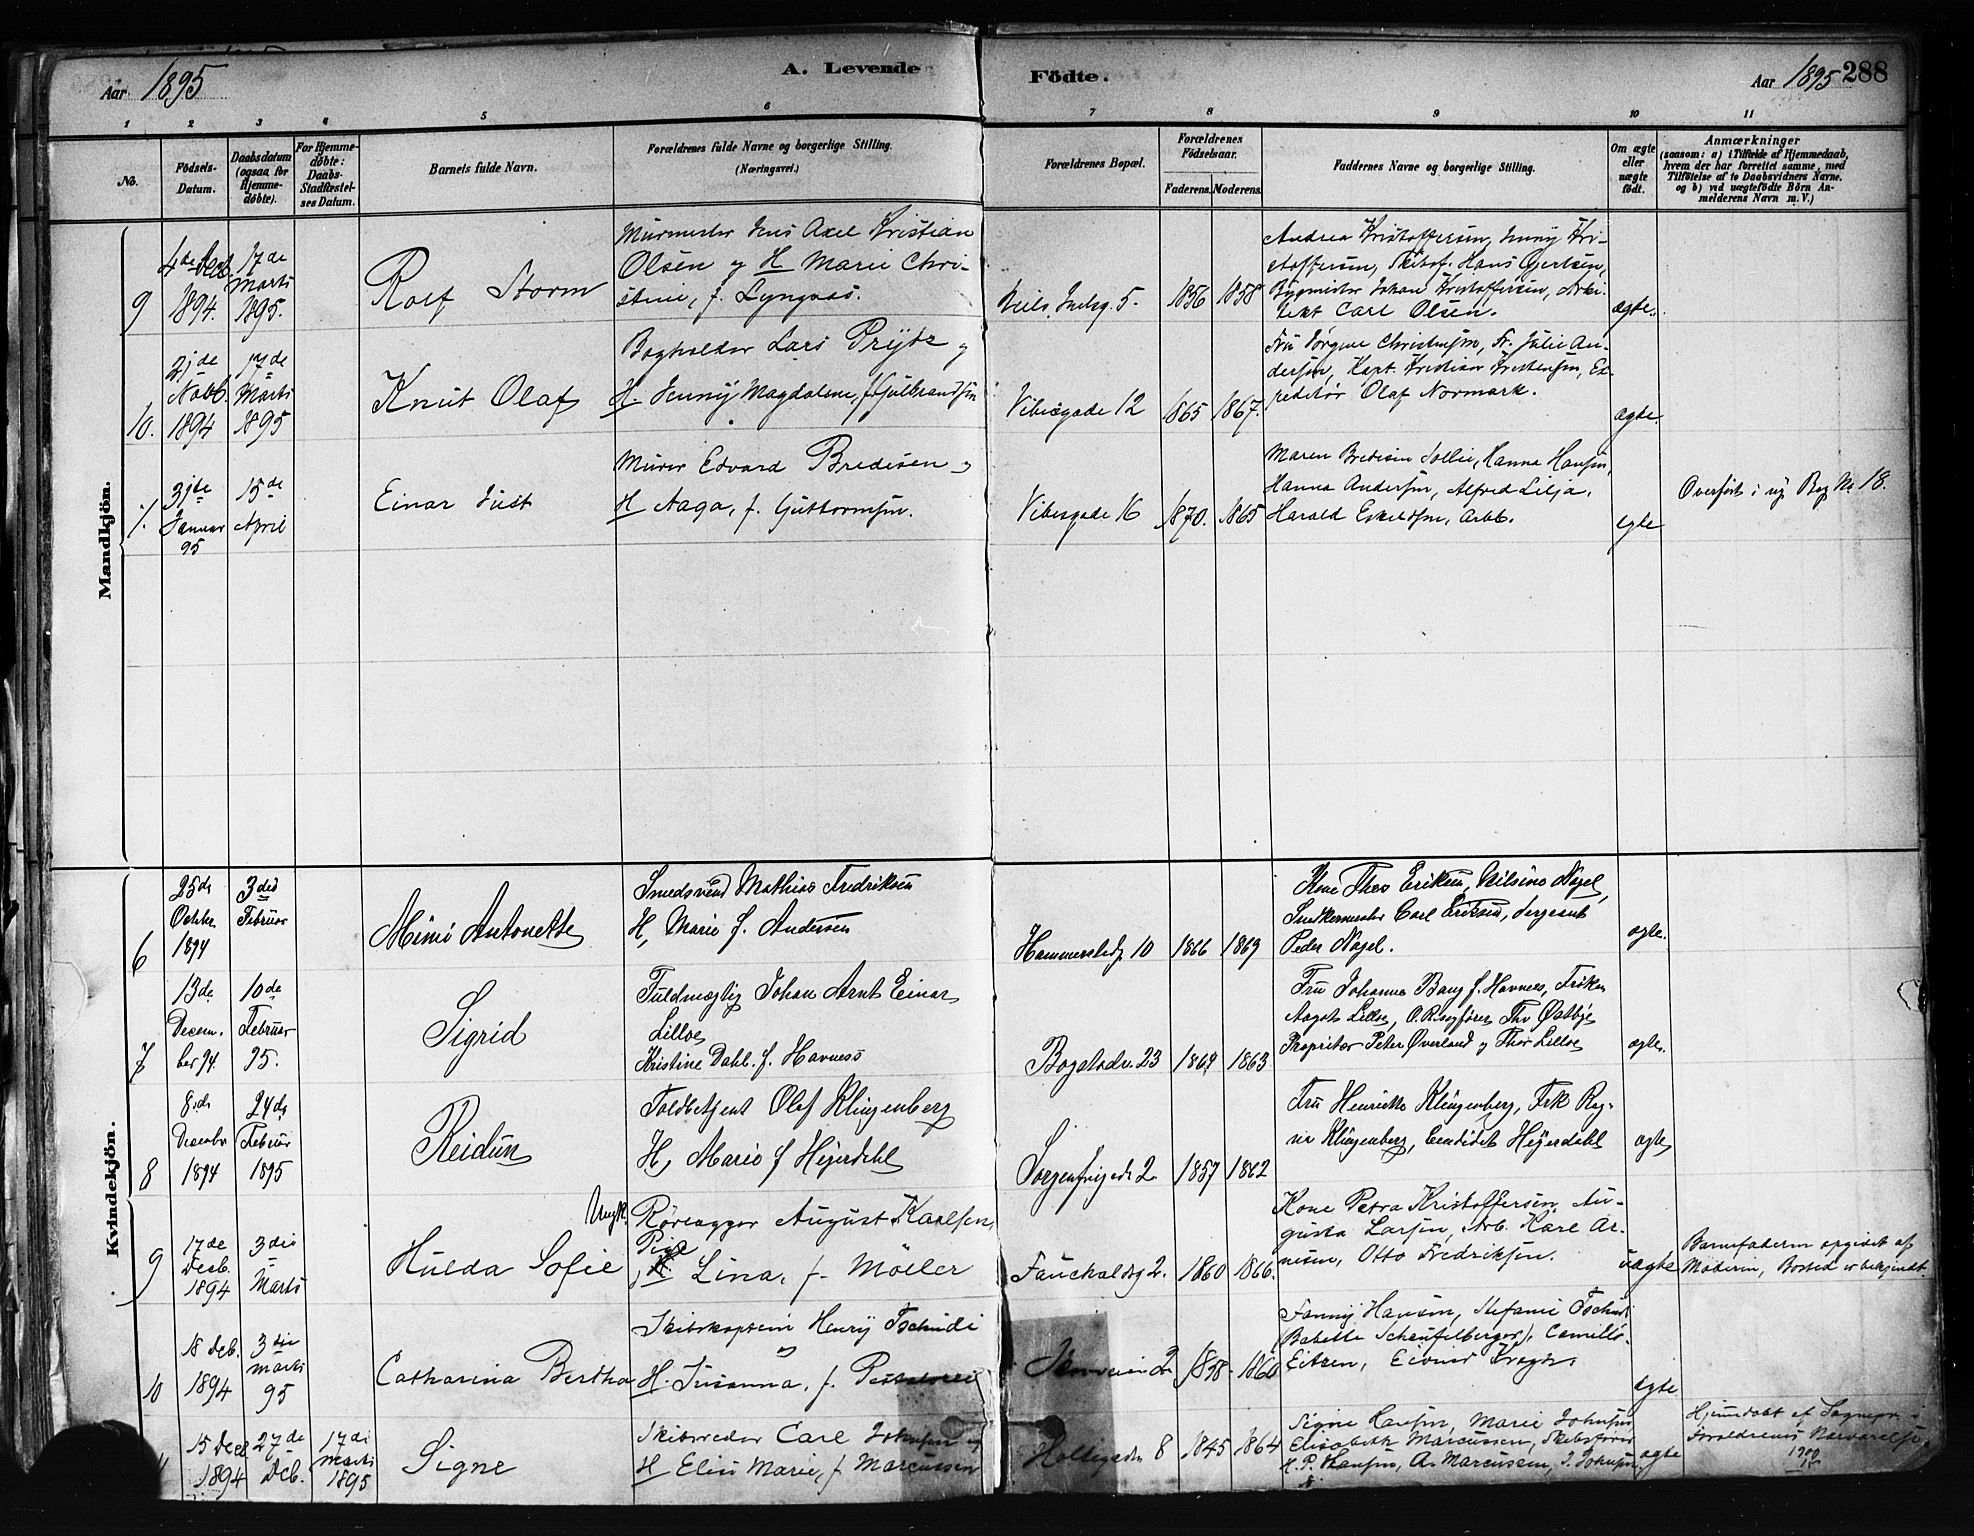 Aar 1895
A. Levende
Födte.
Aar 1895 288
1 2 3 4 5 6 7 8 9 10 11
No.
Födsels-
Datum.
Daabsdatum
(ogsaa for
Hjemme-
døbte).
For Hjemme-
døbte:
Daabs-
Stadfæstel-
ses Datum.
Barnets fulde Navn.
Forældrenes fulde Navne og borgerlige Stilling.
(Næringsvei.)
Forældrenes Bopæl.
Forældrenes
Födselsaar.
Faderens. Moderens.
Faddernes Navne og borgerlige Stilling.
Om ægte
eller
uægte
födt.
Anmærkninger
(saasom: a) i Tilfælde af Hjemmedaab,
hvem der har forrettet samme, med
Tilföielse af to Daabsvidners Navne.
og b) ved uægtefödte Börn An-
melderens Navn m. V.)
Mandkjön.
9
4de Decb.
1894.
17de
Marts
1895.
Rolf Storm
Murmester Jens Axel Kristian
Olsen og H Marie Chri-
stine, f. Lyngaas.
Niels Juelsg. 5.
1856 1858
Andrea Kristoffersen, Jenny Kri-
stoffersen, Skibsf. Hans Gjertsen,
Bygmester Johan Kristoffersen, Arki-
tekt Carl Olsen.
ægte.
10.
2jde
Novb.
1894
17de
Marts
1895
Knut Olaf
Bogholder Lars Prytz og
H. Jenny Magdalene, f. Gulbrandsen
Vibesgade 12
1865 1867.
Fru Jørgine Christensen, Fr. Julie An-
dersen, Kapt. Kristian Kristensen, Ex-
peditør Olaf Normark.
ægte.
11.
31te
Januar
95
15de
April
Einar Just
Murer Edvard Bredesen og
H Aaga, f. Guttormsen.
Vibesgade 16
1870. 1865
Maren Bredesen Sollie, Hanna Hansen,
Hanna Andersen, Alfred Lilja.
Harald Eskildsen, Arbb.
egte
Overført i ny Bog No 18.
Kvindekjön.
6
25de
Octbr
1894
3die
Februar
Mimi Antonette
Smedsvend Mathias Fredriksen
H, Marie f. Andersen
Hammerstedg 10
1866 1869
Kone Thea Eriksen, Nilsine Nagel,
Snedkermester Carl Eriksen, Sergeant
Peder Nagel.
ægte.
7
13de
Decem.
ber 94.
10de
Februar
95.
Sigrid
Fuldmægtig Johan Arnt Einar
Lilloe
Kristine Dahl. f. Havness
Bogstadv. 23
1864 1863
Fru Johanne Bang f. Havnes, Frøken
Aagot Lilloe, O.R.sagfører Thv Østbye
Proprietær Peter Øverland og Thor Lilloe
ægte.
8
8de
Decebr
1894
24de
Februar
1895
Reidun
Toldbetjent Olaf Klingenberg
H, Marie f Heyerdahl
Sorgenfrigade 2.
1857 1862
Fru Henriette Klingenberg, Frk Rag-
na Klingenberg, Candidat Heyerdahl
ægte
9
17de
Decb.
1894
3die
Marts
Hulda Sofie
Ungk. Rørlægger August Karlsen,
Pige
Lina, f. Møller
Fauchaldsg 2.
1860 1866.
Kone Petra Kristoffersen, Au-
gusta Larsen, Arb. Karl Ar-
nesen, Otto Fredriksen.
uægte
Barnefaderen opgivet af
Moderen, Bosted er bekjendt.
10
18 Decb.
1894
3die
Marts
95
Catharina Bertha
Skibskaptein Henry Tschudi
og
H. Susanna, f. Pestalozzi
2
1858 1860
Fanny Hansen, Stefanie Tschudi
(Babette Scheufelberger), Camillo
Eitzen, Eivind Kragh.
egte
11
15 Decb
1894
27de
Deb.
17de
Marts
1895
Signe
Skibsreder Carl Johnsen og
H Elise Marie, f. Marcussen
Holtegaden 8
1845 1864
Signe Hansen, Marie Johnsen
Elisabeth Marcussen, Skibsfører
H. P. Hansen, A. Marcussen, J. Johnsen.
ægte
Hjemdøbt af Sognepr. i
Forældrenes Nærværelse.